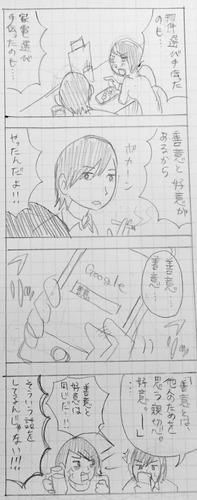 物件選び手伝った
のも…
家電選び
手伝ったのも…
善意と好意が
あるから
やったんだよ!!
ポカーン
善意…
善意…
Google
善意
善意とは、
他人のためを
思う親切心。
好意。
善意と
好意は
同じだ…!!
そういう話を
してるんじゃない!!!